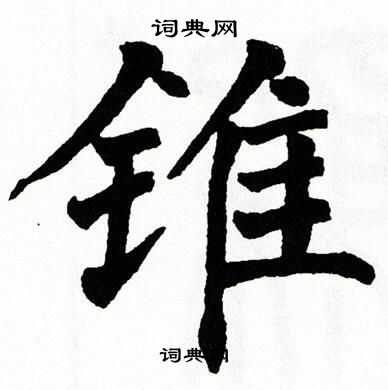 词典网
锥
词典网